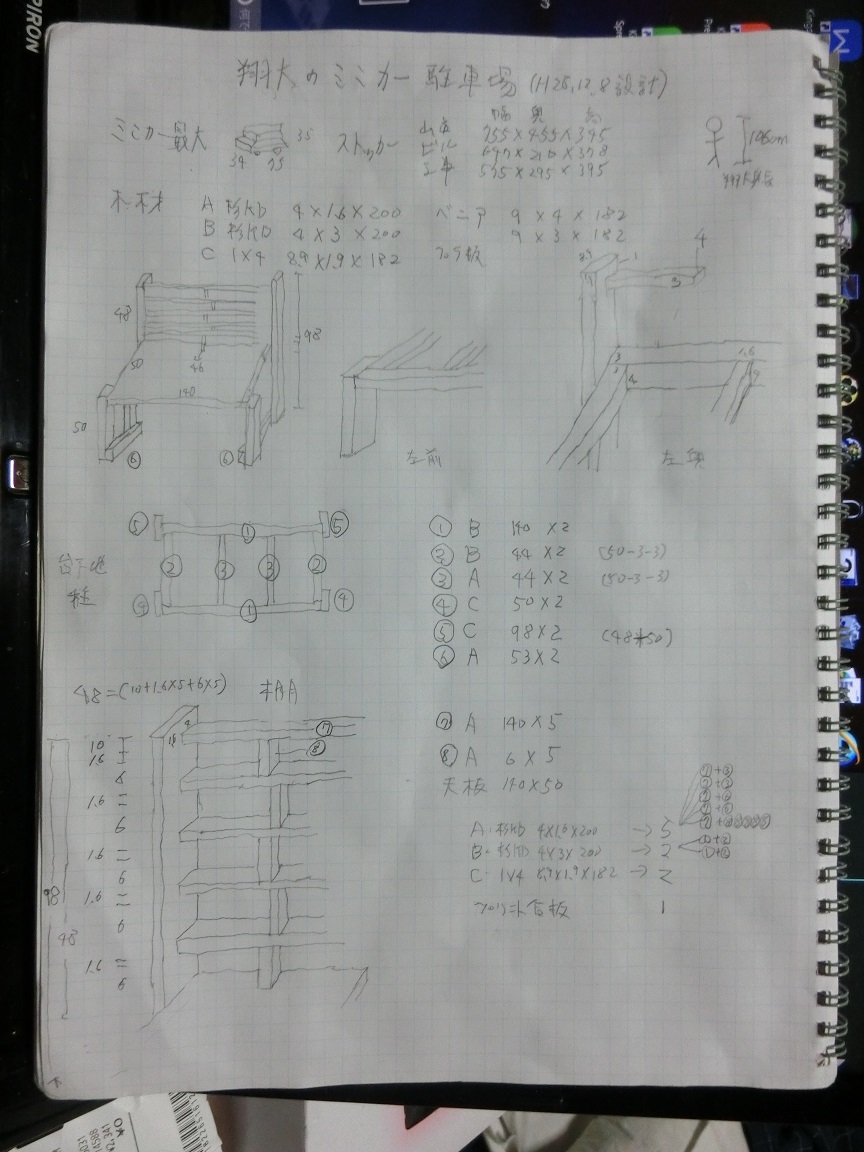 翔大のミニカー駐車場 (H25.12.8設計)
幅 奥 高
ミニカー最大 35 34 75 ストッカー
755×455×395
ビル 697×210×378
工事 575×295×395
106cm
翔大身長
木材 A 杉KD 4×1.6×200 ベニア 9×4×182
B 杉KD 4×3×200 9×3×182
C 1×4 8.9×1.9×182 プラ板
48 98 50 46 140 50 ⑥ ⑥
左前
4 3 1 3 4 1.6
左奥
⑤ ① ⑤
台下地
② ③ ③ ②
④ ① ④
① B 140×2
② B 44×2 (50-3-3)
③ A 44×2 (50-3-3)
④ C 50×2
⑤ C 98×2 (48+50)
⑥ A 53×2
48=(10+1.6×5+6×5) 棚
⑦ A 140×5
⑧ A 6×5
天板 140×50
⑦
⑧
10
1.6
6
1.6
6
1.6
6
1.6
6
1.6
6
98
48
A. 杉KD 4×1.6×200 → 5
B. 杉KD 4×3×200 → 2
C. 1×4 8.9×1.9×182 → 2
プリント合板 1